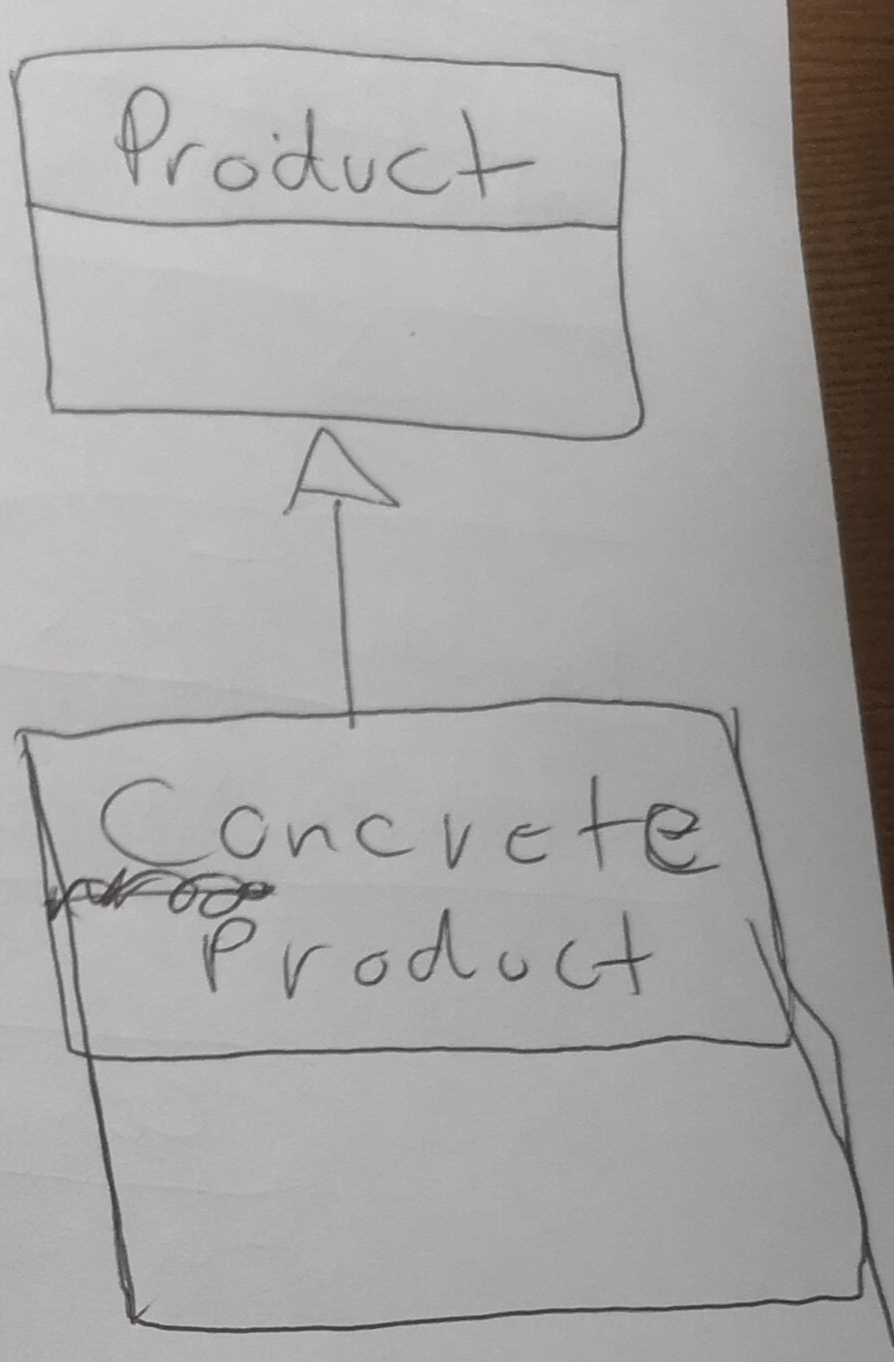 Product
Concrete
Product